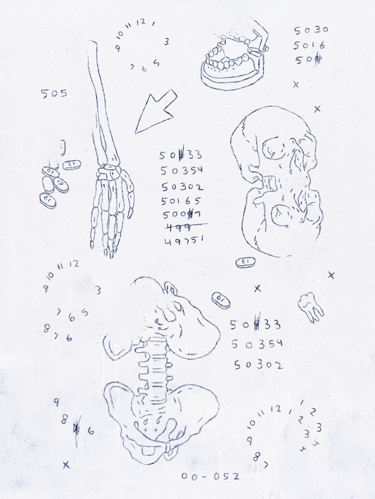 10 11 12 1
9 3
7 6 5
5030
5016
50
505
50 33
50354
50302
50165
500 7
499
49751
81
81
10 11 12
9 3
7 6 5
8 7 6
50 33
50354
50302
9
8 6
9 10 11 12 1 2
2 3
3 3
8 7
00-052